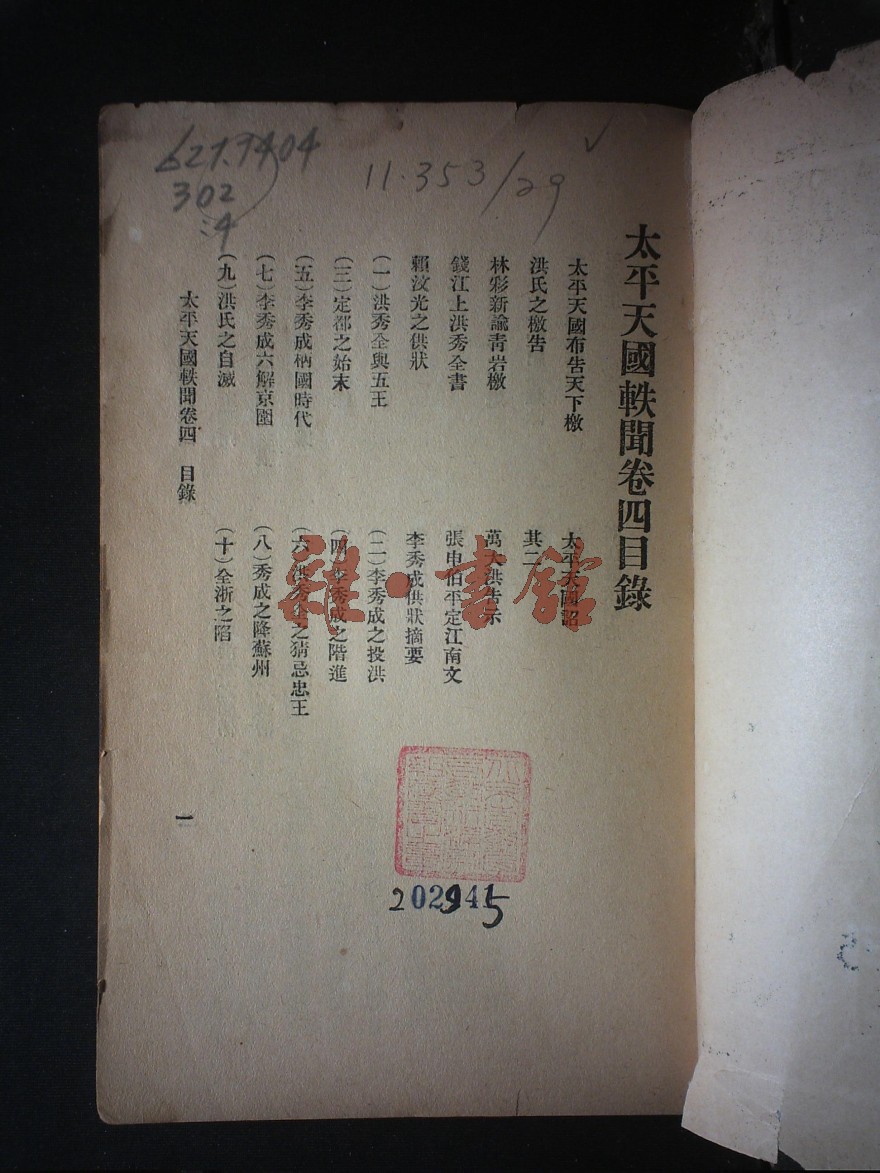 627.7404
302
:4
11.353/29
太平天國軼聞卷四目錄
太平天國布告天下檄
太平天國詔
洪氏之檄告
其二
林彩新諭青岩檄
萬大洪告示
錢江上洪秀全書
張申伯平定江南文
賴汶光之供狀
李秀成供狀摘要
(一)洪秀全與五王
(二)李秀成之投洪
(三)定都之始末
(四)李秀成之階進
(五)李秀成柄國時代
(六)洪秀全之猜忌忠王
(七)李秀成六解京圍
(八)秀成之降蘇州
(九)洪氏之自滅
(十)全浙之陷
太平天國軼聞卷四 目錄
一
雜·書館